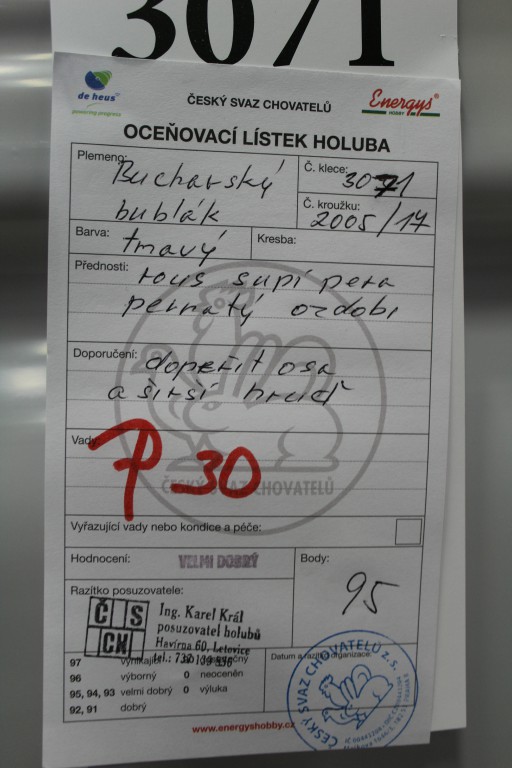 3071
de heus
powering progress
ČESKÝ SVAZ CHOVATELŮ
Energys®
HOBBY
OCEŇOVACÍ LÍSTEK HOLUBA
Plemeno: Bucharský
bublák
Č. klece: 3071
Č. kroužku: 2005/17
Barva: tmavý
Kresba:
Přednosti: rous supí pera
pernatý ozdobi
Doporučení: dopeřit osa
a širší hruď
Vady:
P-30
ČESKÝ SVAZ CHOVATELŮ
Vyřazující vady nebo kondice a péče:
Hodnocení: VELMI DOBRÝ
Body: 95
Razítko posuzovatele:
Č S
CH
Ing. Karel Král
posuzovatel holubů
Havírna 60, Letovice
tel.: 732 139 556
97 vynikající
96 výborný 0 neoceněn
95, 94, 93 velmi dobrý 0 výluka
92, 91 dobrý
Datum a razítko organizace:
ČESKÝ SVAZ CHOVATELŮ z.s.
www.energyshobby.cz